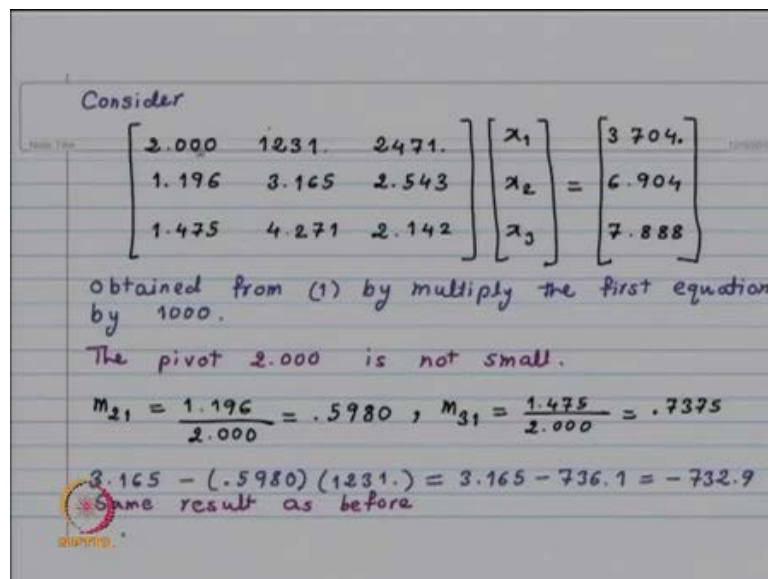 Consider
2.000 1231. 2471. x₁ 3704.
1.196 3.165 2.543 x₂ = 6.904
1.475 4.271 2.142 x₃ 7.888
obtained from (1) by multiply the first equation
by 1000.
The pivot 2.000 is not small.
m₂₁ = 1.196 / 2.000 = .5980 , m₃₁ = 1.475 / 2.000 = .7375
3.165 - (.5980) (1231.) = 3.165 - 736.1 = - 732.9
Same result as before